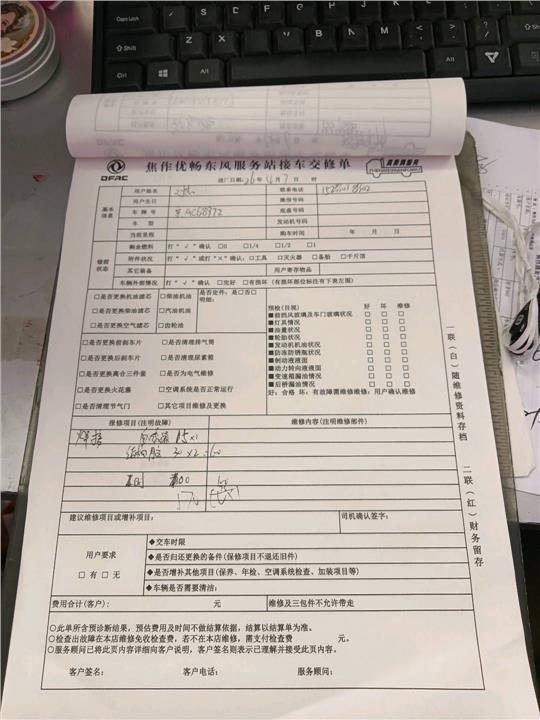 DFAC
焦作优畅东风服务站接车交修单
进厂日期: 26年 月 7日 时
基本信息
用户姓名
联系电话
用户生日
身份号码
车牌号
底盘号码
车型
发动机号码
当前里程
购车时间 年 月 日
修前状态
剩余燃料 打“√”确认 □0 □1/4 □1/2 □1
附件状况 打“√”或打“×”确认: □工具 □灭火器 □备胎 □千斤顶
其它装备 用户寄存物品
车辆外部情况 打“√”确认 □完好 □有损坏(有损坏部位标注有下表左图)
□是否更换机油滤芯 □柴油机油
□是否更换柴油滤芯 □汽油机油
□是否更换空气滤芯 □齿轮油
是否定件: 是□否□
明细:
□是否更换前刹车片 □是否清理排气筒
□是否更换后刹车片 □是否清理尿素箱
□是否更换离合三件套 □是否为电气维修
□是否更换火花塞 □空调系统是否正常运行
□是否清理节气门 □其它项目维修及更换
预检(目视) 好 坏 维修
■前挡风玻璃及车门玻璃状况 □ □ □
■灯具情况 □ □ □
■油量状况 □ □ □
■轮胎状况 □ □ □
■发动机机油状况 □ □ □
■防冻防锈瓶状况 □ □ □
■制动液液面 □ □ □
■动力转向液液面 □ □ □
■变速箱漏油情况 □ □ □
■后桥漏油情况 □ □ □
好: 合格 坏: 有故障需维修维修: 用户确认维修
保修项目(注明故障)
维修内容(注明维修部件)
焊接
15×1
30×2=60
工时
建议维修项目或增补项目:
司机确认签字:
用户要求
□有 □无
◆交车时限
◆是否归还更换的备件(保修项目不退还旧件)
◆是否增补其他项目(保养、年检、空调系统检查、加装项目等)
◆车辆是否需要清洁:
费用合计(客户): 元
维修及三包件不允许带走
○此单所含预诊断结果,预估费用及时间不做结算依据,结算以结算单为准。
○检查出故障在本店维修免收检查费,若不在本店维修,需支付检查费 元。
○服务顾问已将此页内容详细向客户说明,客户签名则表示已理解并接受此页内容。
客户签名: 客户电话: 服务顾问:
一联(白)随维修资料存档
二联(红)财务留存
Ctrl
Alt
Alt
Shift